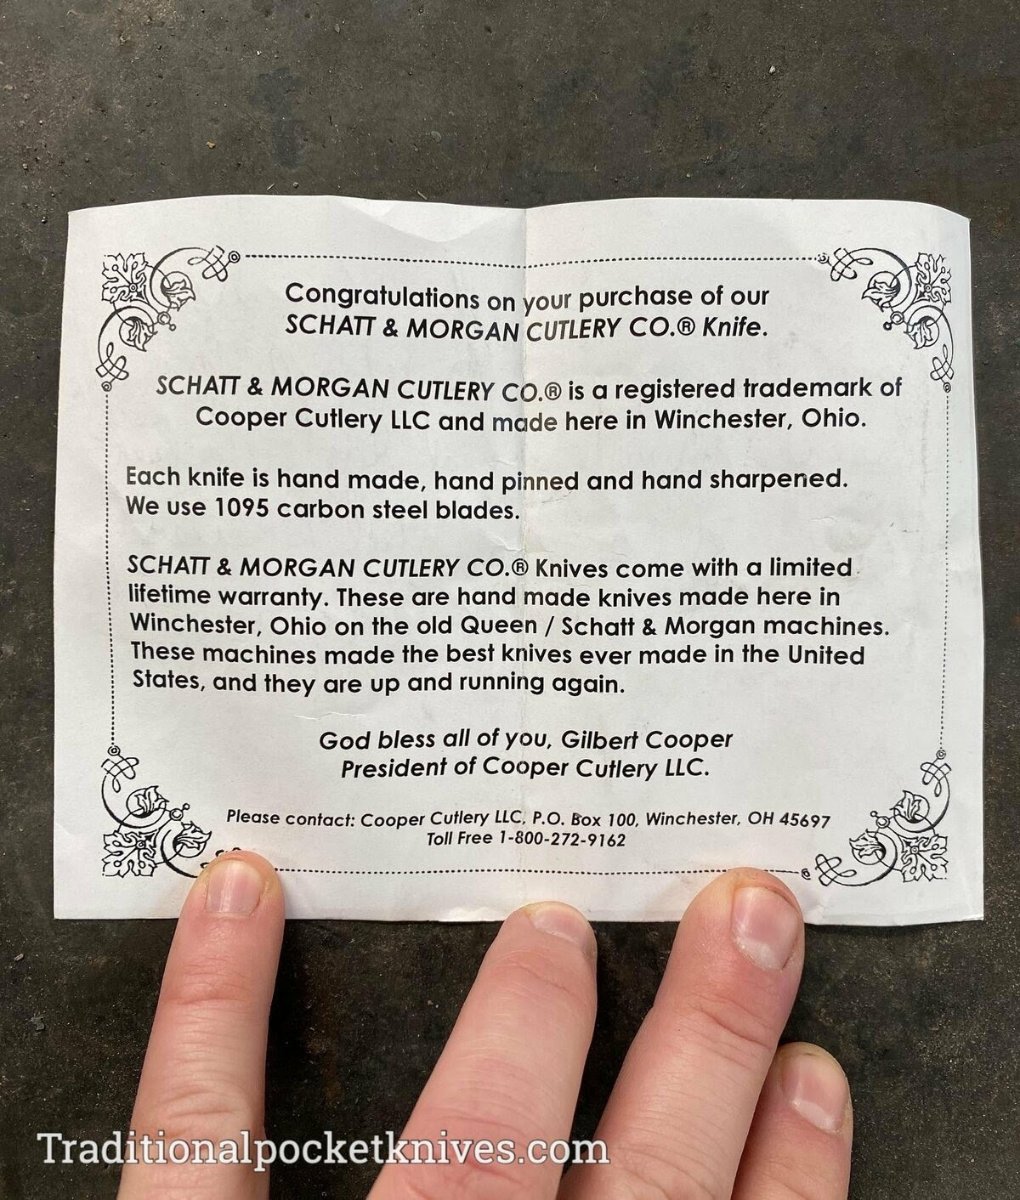 Congratulations on your purchase of our
SCHATT & MORGAN CUTLERY CO.® Knife.
SCHATT & MORGAN CUTLERY CO.® is a registered trademark of
Cooper Cutlery LLC and made here in Winchester, Ohio.
Each knife is hand made, hand pinned and hand sharpened.
We use 1095 carbon steel blades.
SCHATT & MORGAN CUTLERY CO.® Knives come with a limited
lifetime warranty. These are hand made knives made here in
Winchester, Ohio on the old Queen / Schatt & Morgan machines.
These machines made the best knives ever made in the United
States, and they are up and running again.
God bless all of you, Gilbert Cooper
President of Cooper Cutlery LLC.
Please contact: Cooper Cutlery LLC, P.O. Box 100, Winchester, OH 45697
Toll Free 1-800-272-9162
Traditionalpocketknives.com